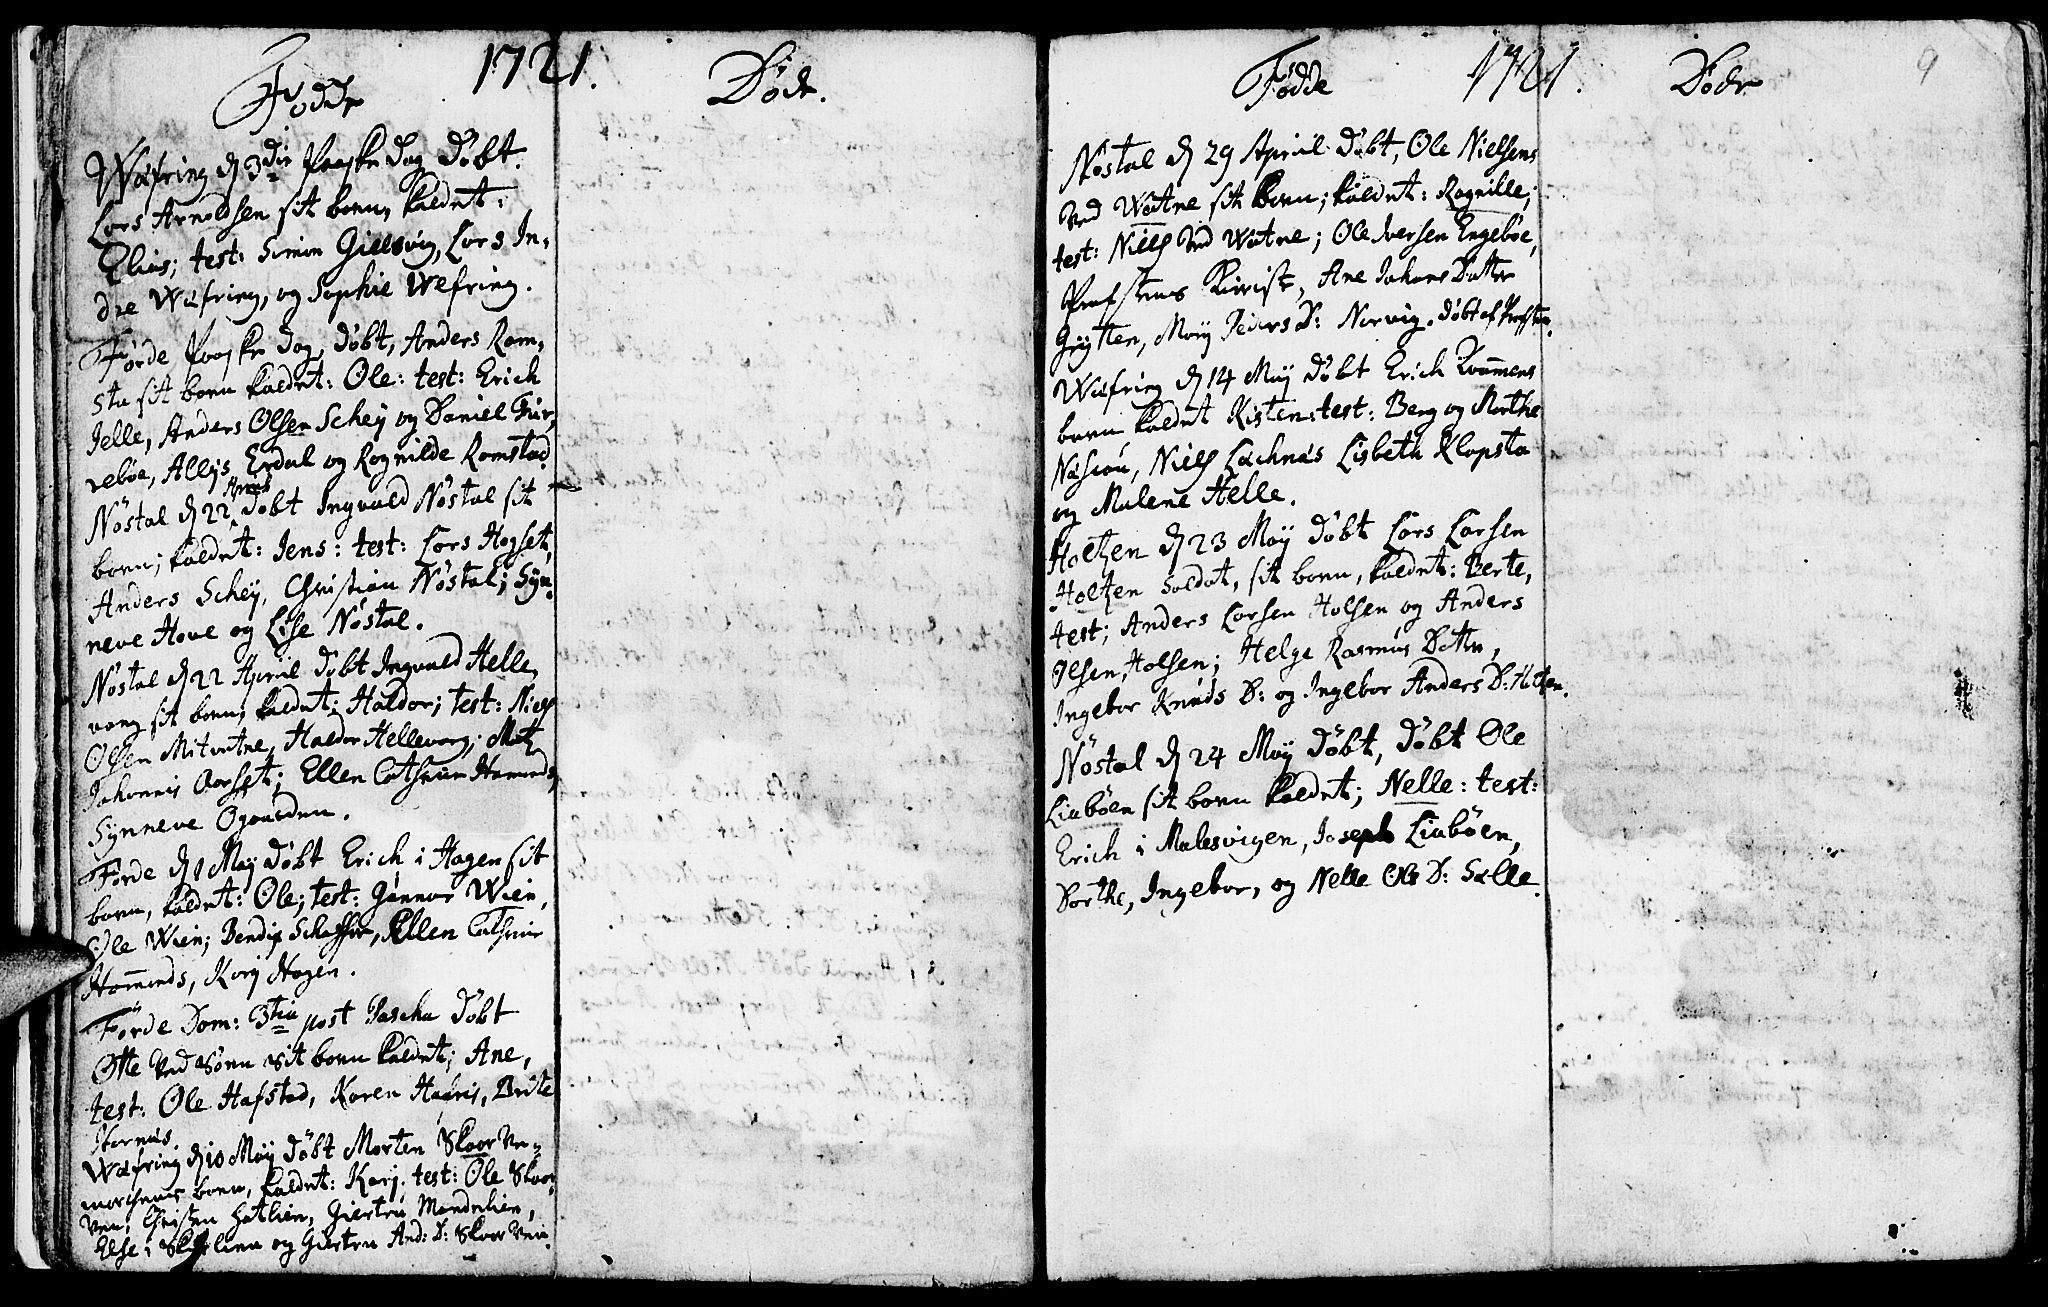 1721.
Fødde
Døde.
Wæfring d 3die Paaske dag døbt.
Lars Arnoldsen sit barn, kaldet:
Elias; test: Simon Gielsvig, Lars In-
dre Wæfring, og Sophie Wefring.
Førde Paaske dag, døbt, Anders Rom,
sta sit barn kaldet: Ole: test: Erich
Ielle, Anders Olsen Schey og Daniel Fur,
rebøe, Allis Erdal og Ragnilde Romstad.
Nøstal d 22 April døbt Ingvald Nøstal sit
barn; kaldet: Iens: test: Lars Hogset,
Anders Schey, Christian Nøstal; Syn-
neve Hove og Lise Nøstal.
Nøstal d 22 April døbt Ingvald Helle,
vang sit barn; kaldet: Haldor; test: Niels
Olsen Mitvatne, Haldor Hellevang;
Johannis Aarset; Ellen Cathrine Hammonds,
Synneve
Førde d 1 May døbt Erich i Hagen sit
barn, kaldet: Ole; test: Gunnar Wien,
Ole Wien; Bendix Schaffer, Ellen Cathrine
Hammonds, Karj Hagen.
Førde Dom: 3tia post Pascha døbt
Otte ved Søen sit barn kaldet; Ane,
test: Ole Hafstad, Karen Brite
Hornæs.
Wæfring d 10 May døbt Morten Skaar Ve-
barn, kaldet: Karj. test: Ole Skaar
Ven, Christen Hatlien, Giertru Mandrlien,
Else i og Giertru And: D: Skaar Ven.
Fødde
1721.
Døde
9
Nøstal d 29 April døbt, Ole Nielsens
ved Watne sit barn; kaldet: Ragnille;
test: Niels ved Watne; Ole Iversen Engebøe,
Præstens Ane Johans Datter
Grytten, Mary Peders D: Norvig. døbt af Præsten.
Wæfring d 14 May døbt Erich Kvammens
barn kaldet Kisten: test: Berg og Marthe
Niels Lachnæs Lisbeth Klopsta
og Malene Helle.
Holsen d 23 May døbt Lars Larsen
Holsen Soldat, sit barn, kaldet: Berte,
test; Anders Larsen Holsen og Anders
Olsen Holsen; Helge Rasmus Datter,
Ingebor Knuds D: og Ingebor Anders D: Holsen.
Nøstal d 24 May døbt, døbt Ole
Liabøen sit barn kaldet; Nelle: test:
Erich i Malesvigen, Joseph Liabøen,
Dorthe, Ingebor, og Nelle Ols D: Solle.